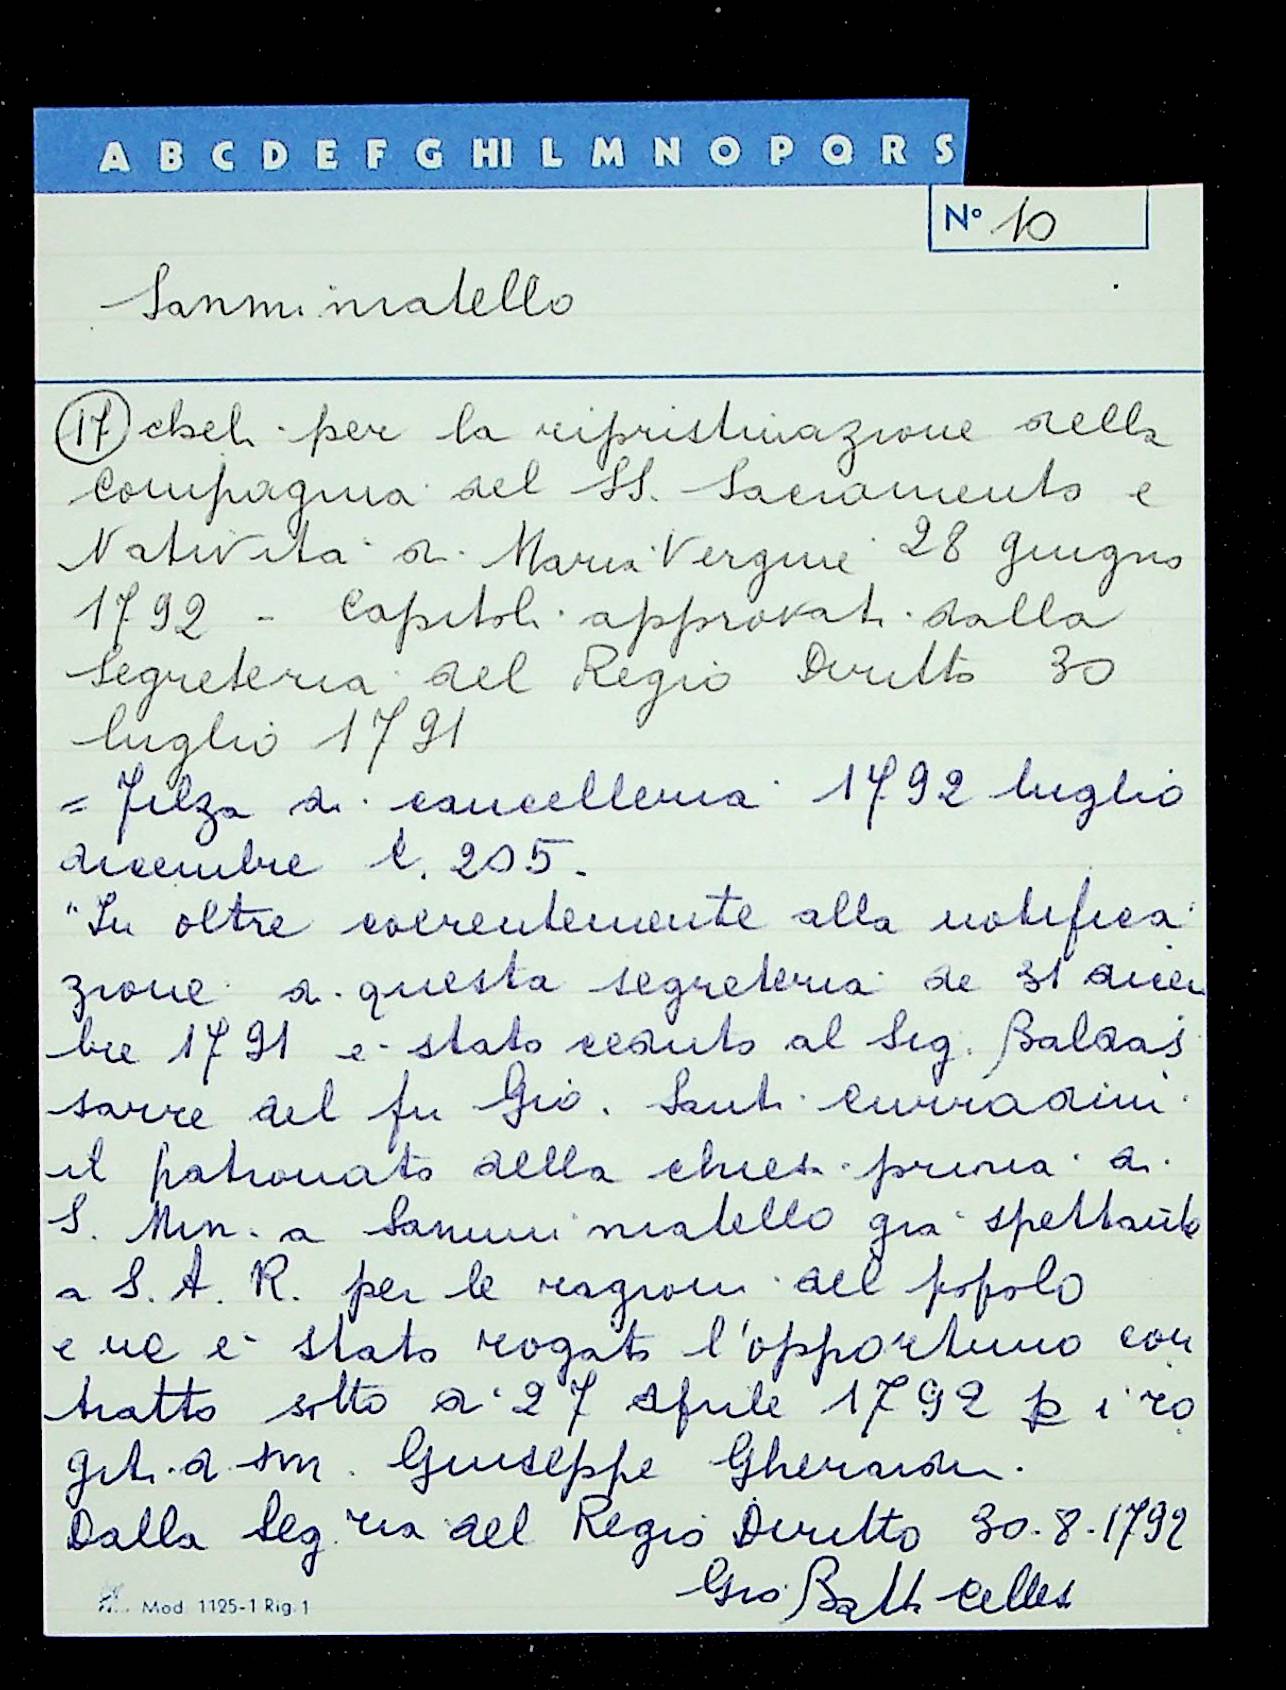 A B C D E F G HI L M N O P Q R S
N° 10
Sanminiatello
17 cheli per la ripristinazione della
Compagnia del SS. Sacramento e
Natività di Maria Vergine 28 giugno
1792 - Capitoli approvati dalla
Segreteria del Regio Diritto 30
luglio 1791
= Filza di cancelleria 1792 luglio
dicembre c. 205.
"In oltre coerentemente alla notifica
zione di questa segreteria de 31 dicem
bre 1791 è stato ceduto al Sig. Baldas
sarre del fu Gio. Santi Curradini
il patronato della chiesa prioria di
S. Min. a Samminiatello già spettante
a S. A. R. per le ragioni del popolo
e ne è stato rogato l'opportuno con
tratto sotto dì 27 Aprile 1792 p i ro
giti di ser Giuseppe Gherardi.
Dalla Seg.ria del Regio Diritto 30.8.1792
Gio Batti Cellesi
Mod. 1125-1 Rig. 1